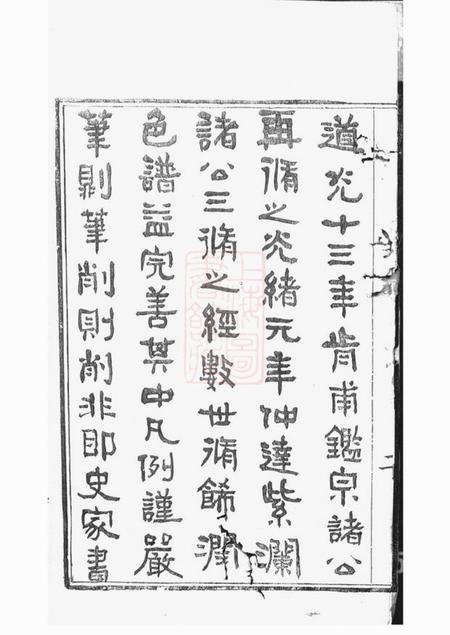 道光十三年肯甫鑑泉諸公
再脩之光緒元年仲達紫瀾
諸公三脩之經數世脩飾潤
色譜益完善其中凡例謹嚴
筆則筆削則削非即史家書
二